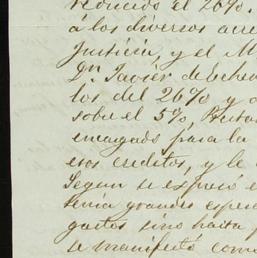 reducido el 26%.
á los diversos acre
justicia, y el M
Dn. Javier de Echev
los del 26% y a
sobre el 5%,
encargado para la
esos creditos, y le
Segun se expresó e
tenia grandes esper
gastos sino hasta p
se manifestó com